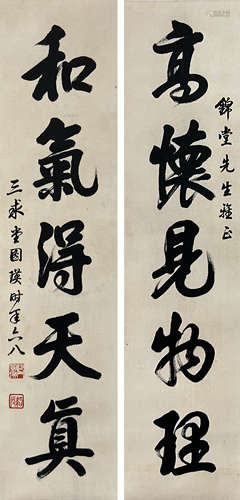 錦堂先生雅正
高懷見物理
和氣得天真
三求堂圓瑛時年六八